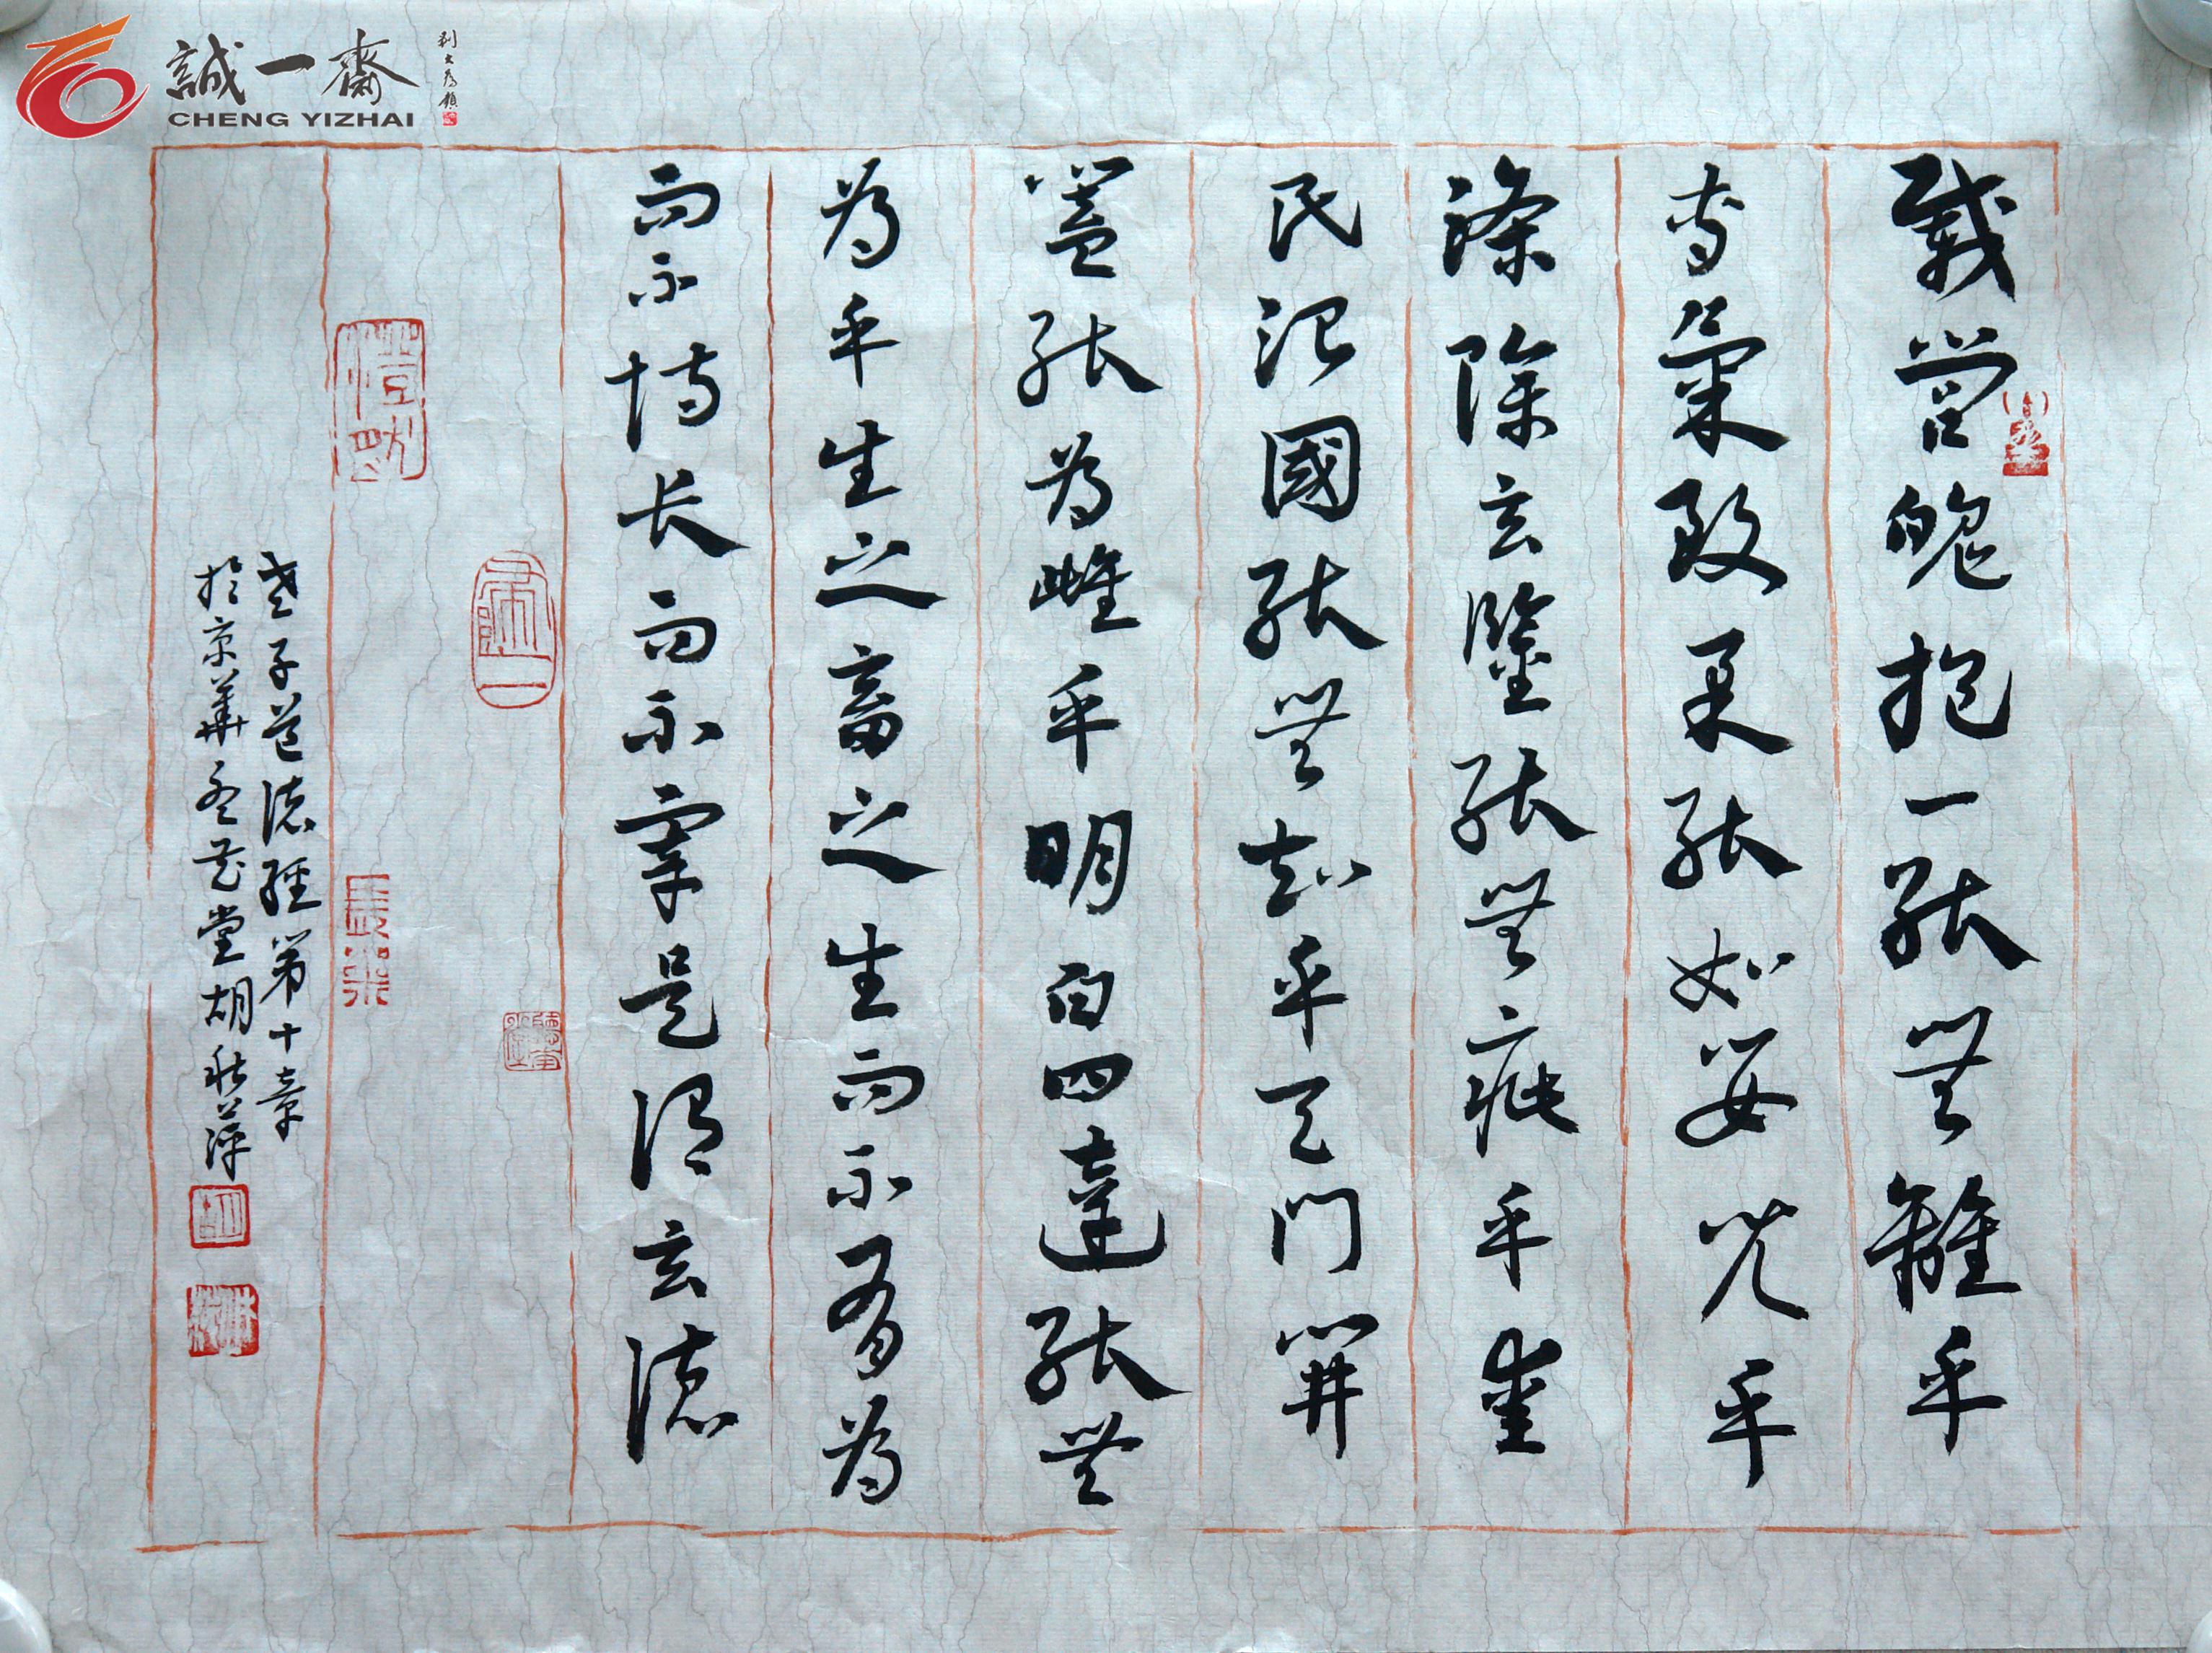 誠一齋
CHENG YIZHAI
載營魄抱一能無離乎
專氣致柔能如嬰兒乎
滌除玄鑒能無疵乎愛
民治國能無知乎天門開
闔能為雌乎明白四達能無
為乎生之畜之生而不有為
而不恃長而不宰是謂玄德
老子道德經第十章
於京華
堂胡秋萍